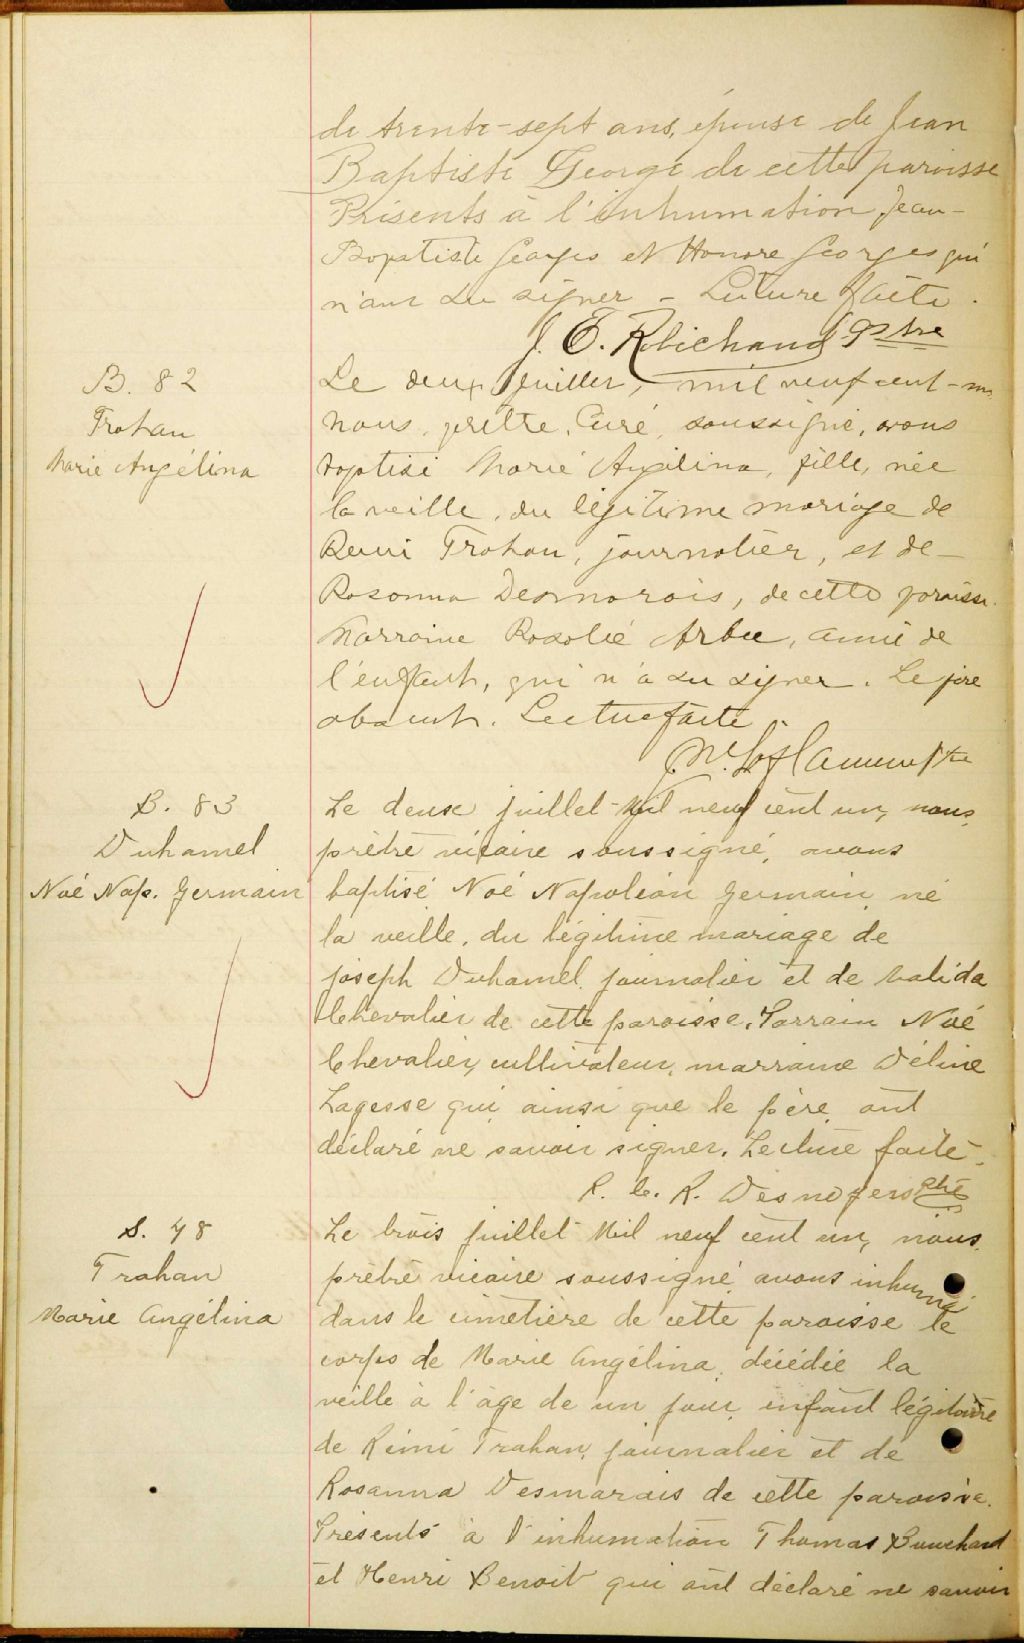 de trente-sept ans, épouse de Jean
Baptiste George de cette paroisse
Présents à l'inhumation Jean-
Baptiste Georges et Honoré Georges qui
n'ont su signer - Lecture faite.
J. E. Robichaud Ptre
B. 82
Trahan
Marie Angélina
Le deux juillet, mil neuf cent-un
nous, prêtre, Curé, soussigné, avons
baptisé Marie Angélina, fille, née
la veille, du légitime mariage de
Remi Trahan, journalier, et de-
Rosanna Desmarais, de cette paroisse.
Marraine Rosalie
l'enfant, qui n'a su signer. Le père
absent. Lecture faite
Ptre
B. 83
Duhamel
Noé Nap. Germain
Le deux juillet Mil neuf cent un, nous,
prêtre vicaire soussigné, avons
baptisé Noé Napoléon Germain né
la veille, du légitime mariage de
Joseph Duhamel, journalier et de Valida
Chevalier de cette paroisse. Parrain Noé
Chevalier, cultivateur, marraine Déline
Lagesse qui ainsi que le père ont
déclaré ne savoir signer. Lecture faite-
R. C. R. Desnoyers Ptre
S. 48
Trahan
Marie Angélina
Le trois juillet Mil neuf cent un, nous,
prêtre vicaire soussigné, avons inhumé
dans le cimetière de cette paroisse le
corps de Marie Angélina, décédée la
veille à l'âge de un jour, enfant légitime
de Rémi Trahan, journalier et de
Rosanna Desmarais de cette paroisse.
Présents à l'inhumation Thomas Bouchard
et Henri Benoit qui ont déclaré ne savoir